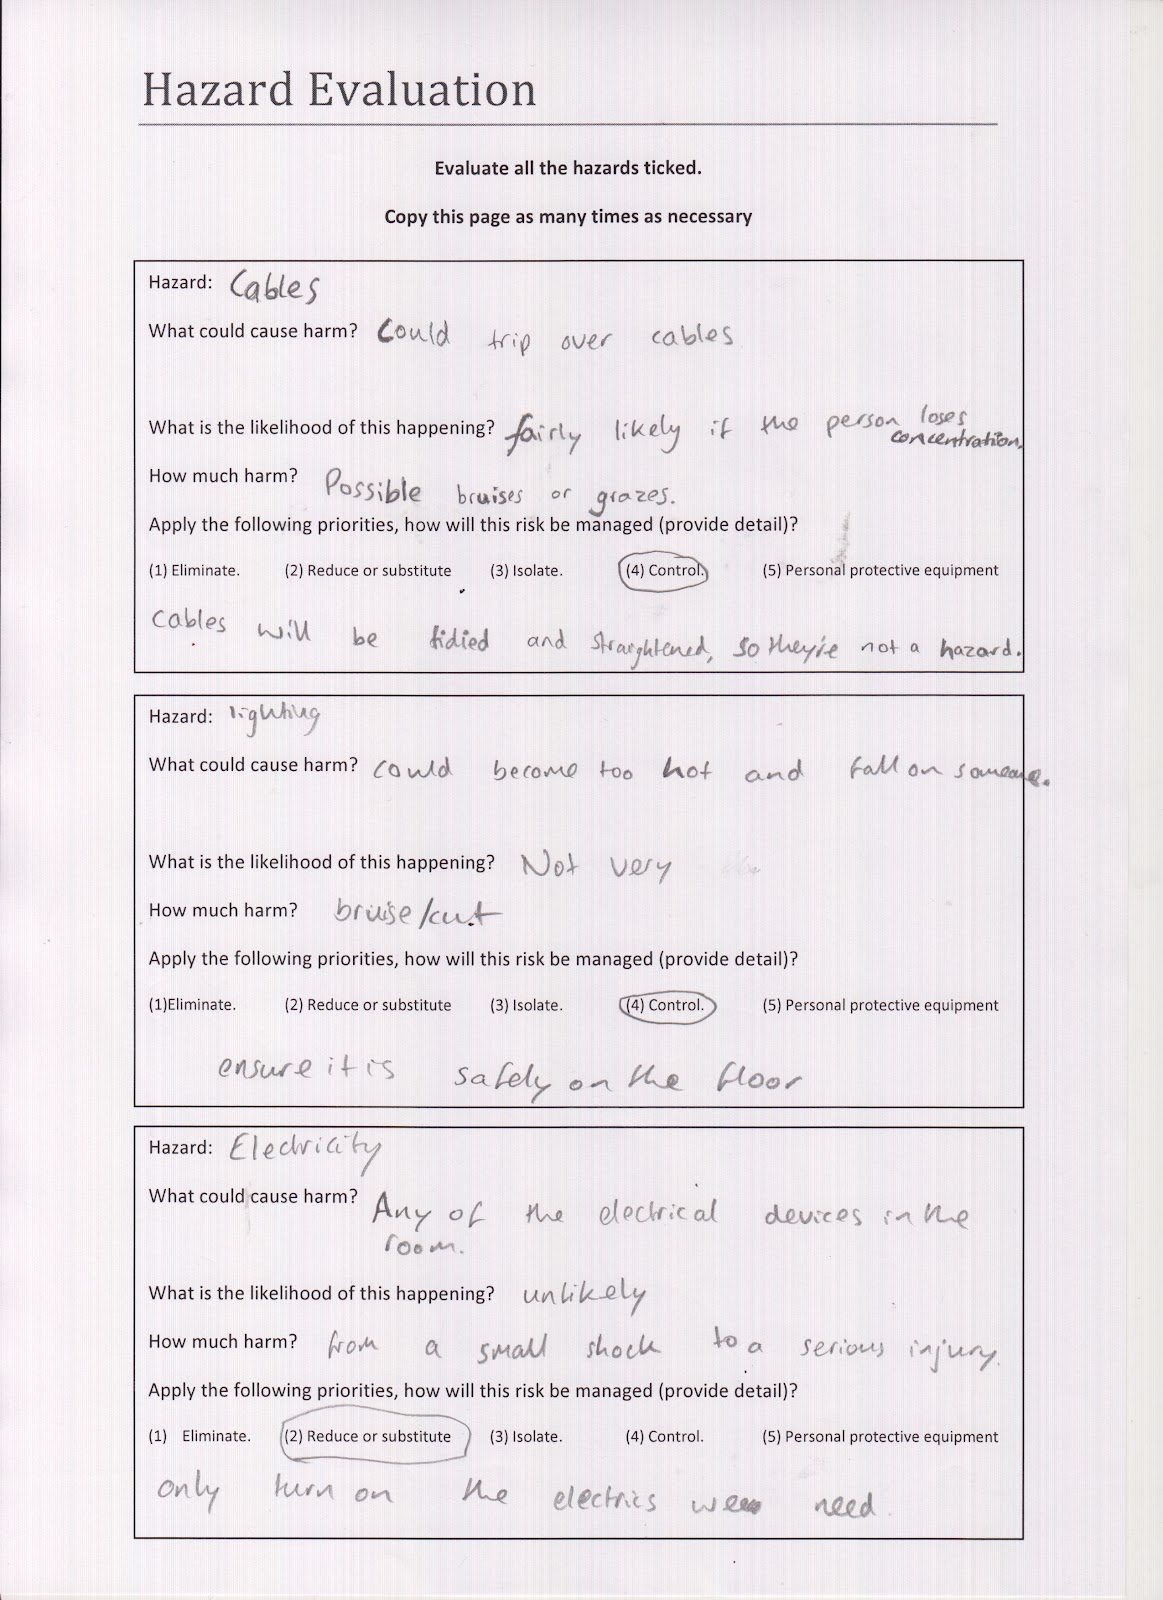 Hazard Evaluation
Evaluate all the hazards ticked.
Copy this page as many times as necessary
Hazard: Cables
What could cause harm? Could trip over cables
What is the likelihood of this happening? fairly likely if the person loses
concentration.
How much harm? Possible bruises or grazes.
Apply the following priorities, how will this risk be managed (provide detail)?
(1) Eliminate. (2) Reduce or substitute (3) Isolate. (4) Control. (5) Personal protective equipment
Cables will be tidied and straightened, so they're not a hazard.
Hazard: lighting
What could cause harm? could become too hot and fall on someone.
What is the likelihood of this happening? Not very
How much harm? bruise/cut
Apply the following priorities, how will this risk be managed (provide detail)?
(1)Eliminate. (2) Reduce or substitute (3) Isolate. (4) Control. (5) Personal protective equipment
ensure it is safely on the floor
Hazard: Electricity
What could cause harm? Any of the electrical devices in the
room.
What is the likelihood of this happening? unlikely
How much harm? from a small shock to a serious injury.
Apply the following priorities, how will this risk be managed (provide detail)?
(1) Eliminate. (2) Reduce or substitute (3) Isolate. (4) Control. (5) Personal protective equipment
only turn on the electrics need.